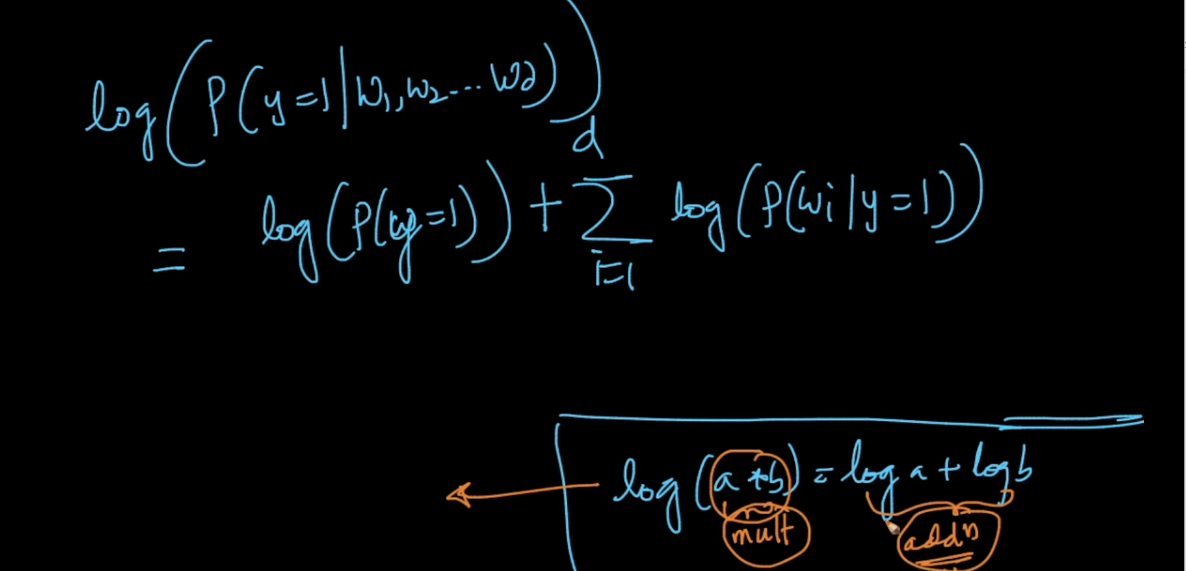 log(P(y=1|w1,w2...wd))
= log(P(y=1)) + d Σ i=1 log(P(wi|y=1))
log(a*b) = log a + log b
mult addn